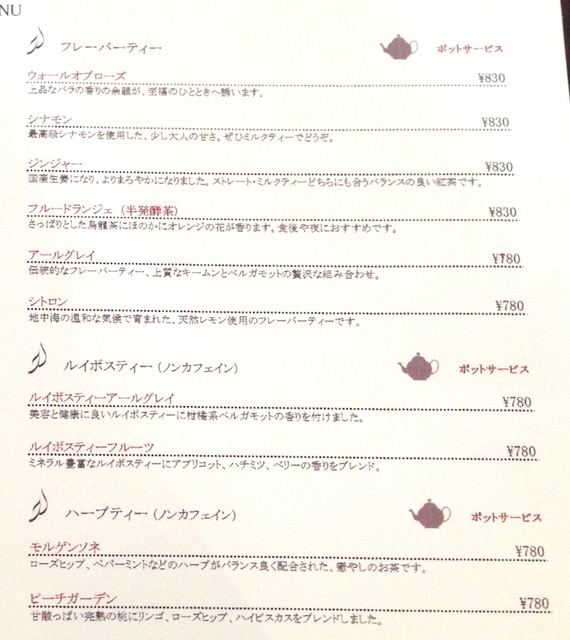 NU
フレーバーティー ポットサービス
ウォールオブローズ ¥830
上品なバラの香りの余韻が、至福のひとときへ誘います。
シナモン ¥830
最高級シナモンを使用した、少し大人の甘さ。ぜひミルクティーでどうぞ。
ジンジャー ¥830
国産生姜になり、よりまろやかになりました。ストレート・ミルクティーどちらにも合うバランスの良い紅茶です。
フルードランジェ（半発酵茶） ¥830
さっぱりとした烏龍茶にほのかにオレンジの花が香ります。食後や夜におすすめです。
アールグレイ ¥780
伝統的なフレーバーティー、上質なキームンとベルガモットの贅沢な組み合わせ。
シトロン ¥780
地中海の温和な気候で育まれた、天然レモン使用のフレーバーティーです。
ルイボスティー（ノンカフェイン） ポットサービス
ルイボスティーアールグレイ ¥780
美容と健康に良いルイボスティーに柑橘系ベルガモットの香りを付けました。
ルイボスティーフルーツ ¥780
ミネラル豊富なルイボスティーにアプリコット、ハチミツ、ベリーの香りをブレンド。
ハーブティー（ノンカフェイン） ポットサービス
モルゲンソネ ¥780
ローズヒップ、ペパーミントなどのハーブがバランス良く配合された、癒やしのお茶です。
ピーチガーデン ¥780
甘酸っぱい完熟の桃にリンゴ、ローズヒップ、ハイビスカスをブレンドしました。